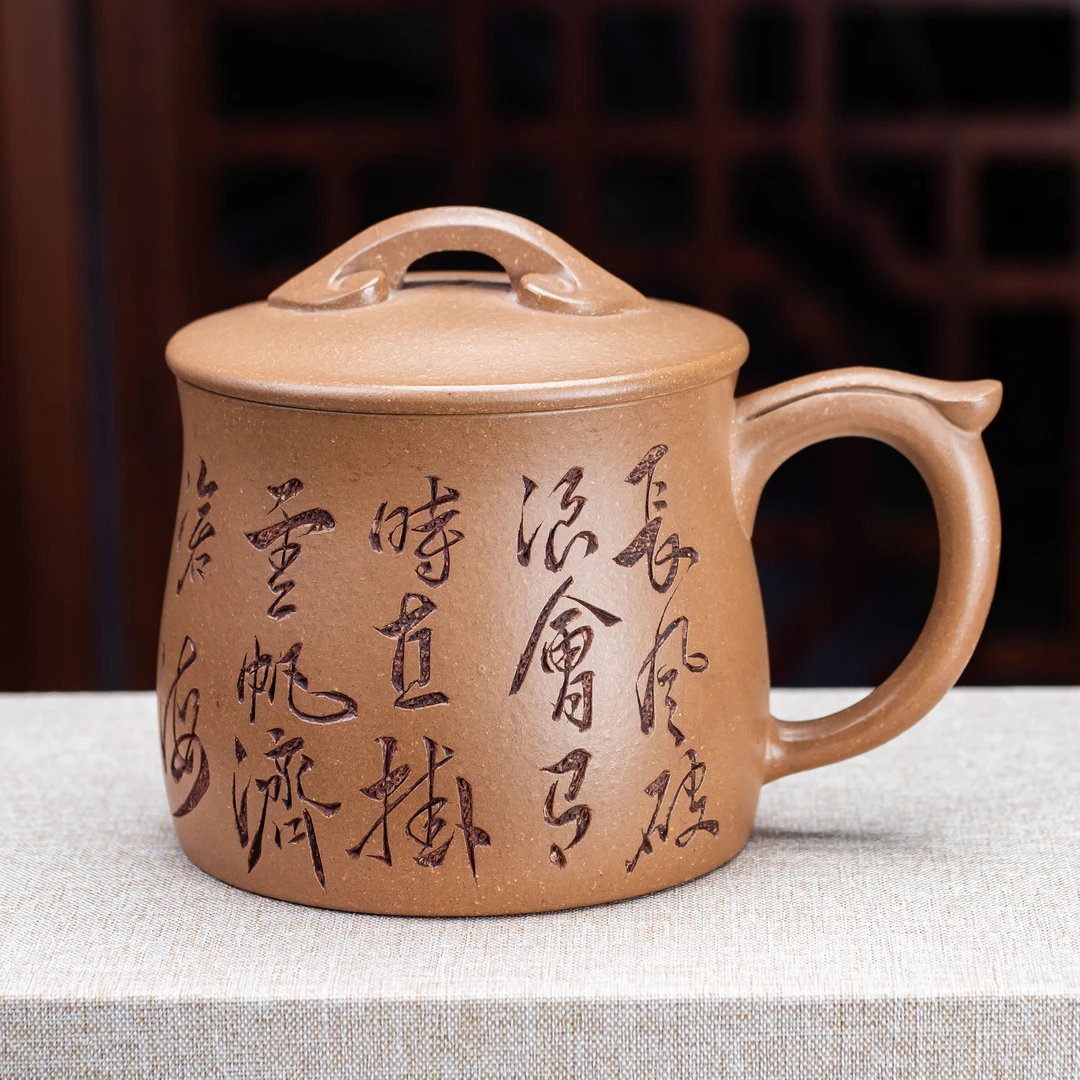 長風破
浪會有
時直掛
雲帆濟
滄海